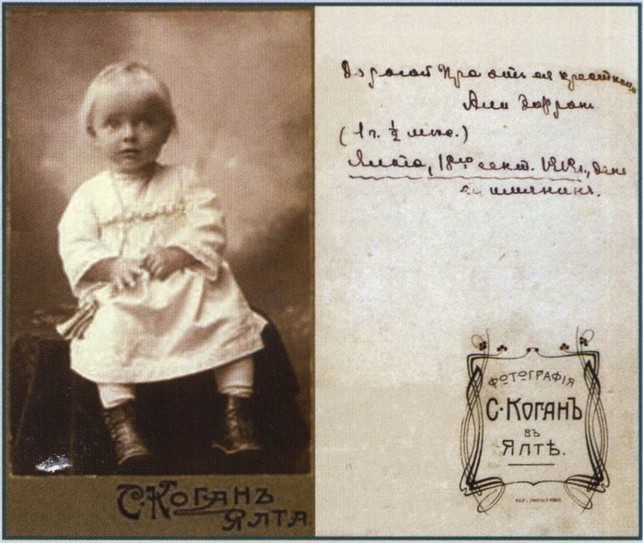 С. Коганъ
Ялта
Дорогой Ире отъ ея крестницы
Али
(1 г. ½ мѣс.)
Ялта, 18го сент. 1912г., день
ея имянин.
ФОТОГРАФІЯ
С. Коганъ
ВЪ
ЯЛТѢ.